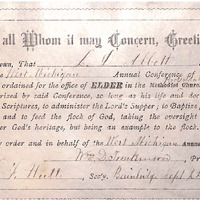 all Whom it may Concern, Greeti
own, That L. J. Abbott
West Michigan Annual Conference of
ordained for the office of ELDER in the Methodist Church
orized by said Conference, so long as his life and doc
Scriptures, to administer the Lord's Supper; to Baptize,
and to feed the flock of God, taking the oversight
er God's heritage, but being an example to the flock.
order and in behalf of the West Michigan Annua
Secty.